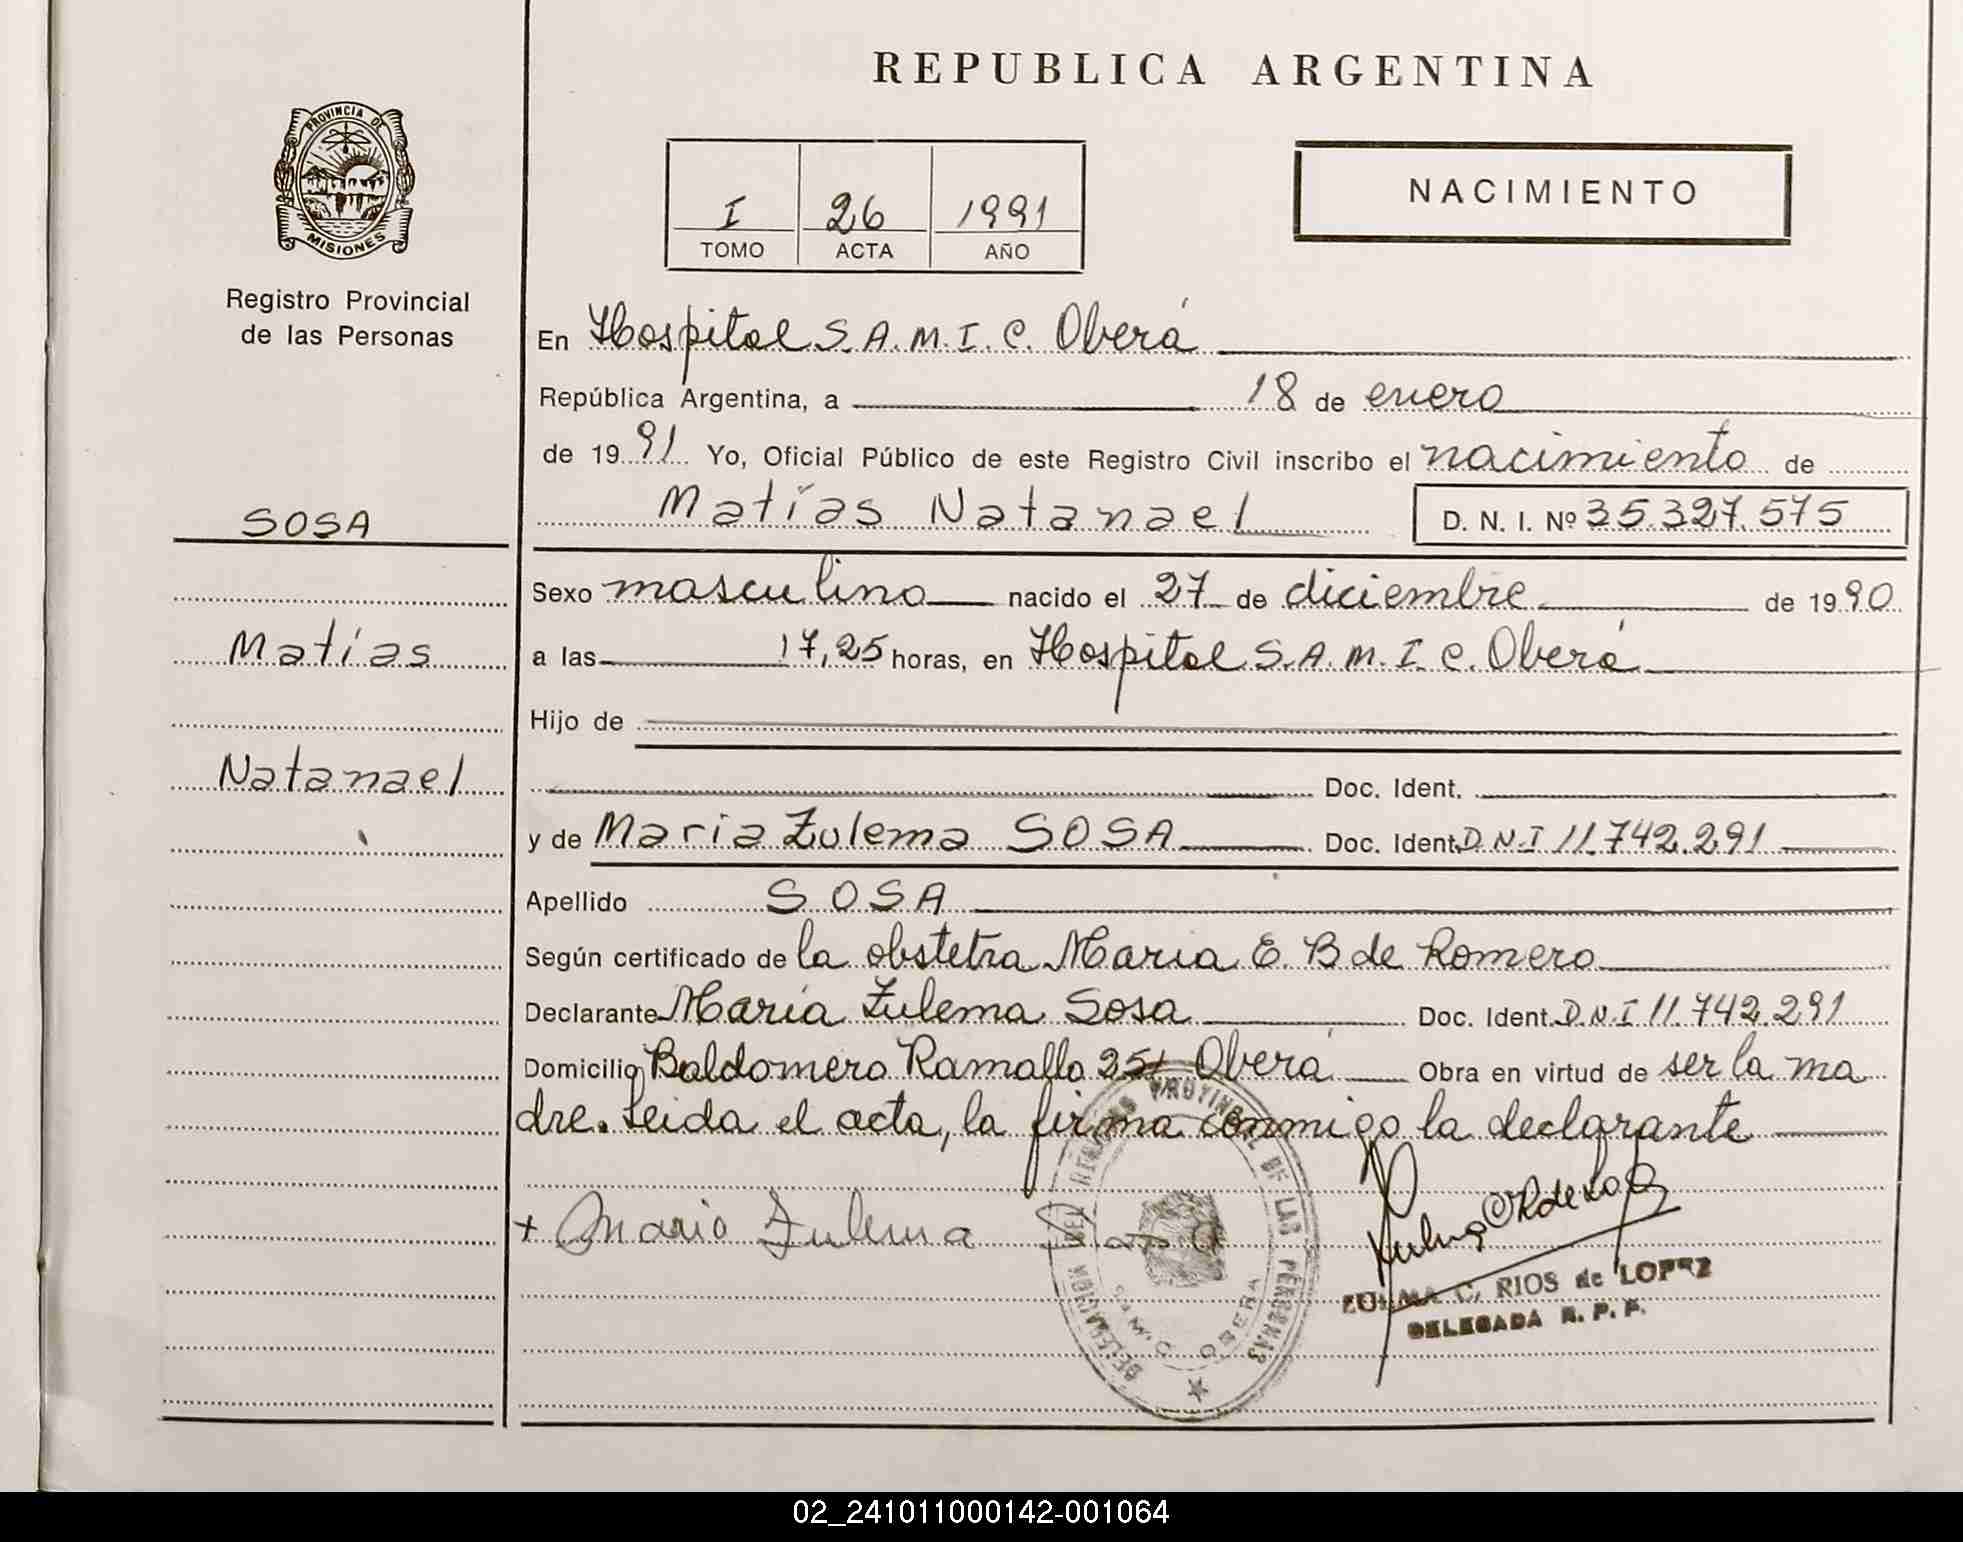 REPUBLICA ARGENTINA
PROVINCIA DE
MISIONES
Registro Provincial
de las Personas
I 26 1991
TOMO ACTA AÑO
NACIMIENTO
En Hospital S.A.M.I.C. Oberá
República Argentina, a 18 de enero
de 1991 Yo, Oficial Público de este Registro Civil inscribo el nacimiento de
Matías Natanael D. N. I. Nº 35.327.575
SOSA
Matías
Natanael
Sexo masculino nacido el 27 de diciembre de 1990
a las 17,25 horas, en Hospital S.A.M.I.C. Oberá
Hijo de
Doc. Ident.
y de Maria Zulema SOSA Doc. Ident. D.N.I 11.742.291
Apellido SOSA
Según certificado de la obstetra Maria E. B de Romero
Declarante María Zulema Sosa Doc. Ident. D.N.I 11.742.291
Domicilio Baldomero Ramallo 251 Oberá Obra en virtud de ser la ma
dre. Leida el acta, la firma conmigo la declarante
+ Maria Zulema Sosa
DELEGACION DEL REGISTRO PROVINCIAL DE LAS PERSONAS
S.A.M.I.C. OBERA
ZULMA C. RIOS de LOPEZ
DELEGADA R. P. P.
02_241011000142-001064